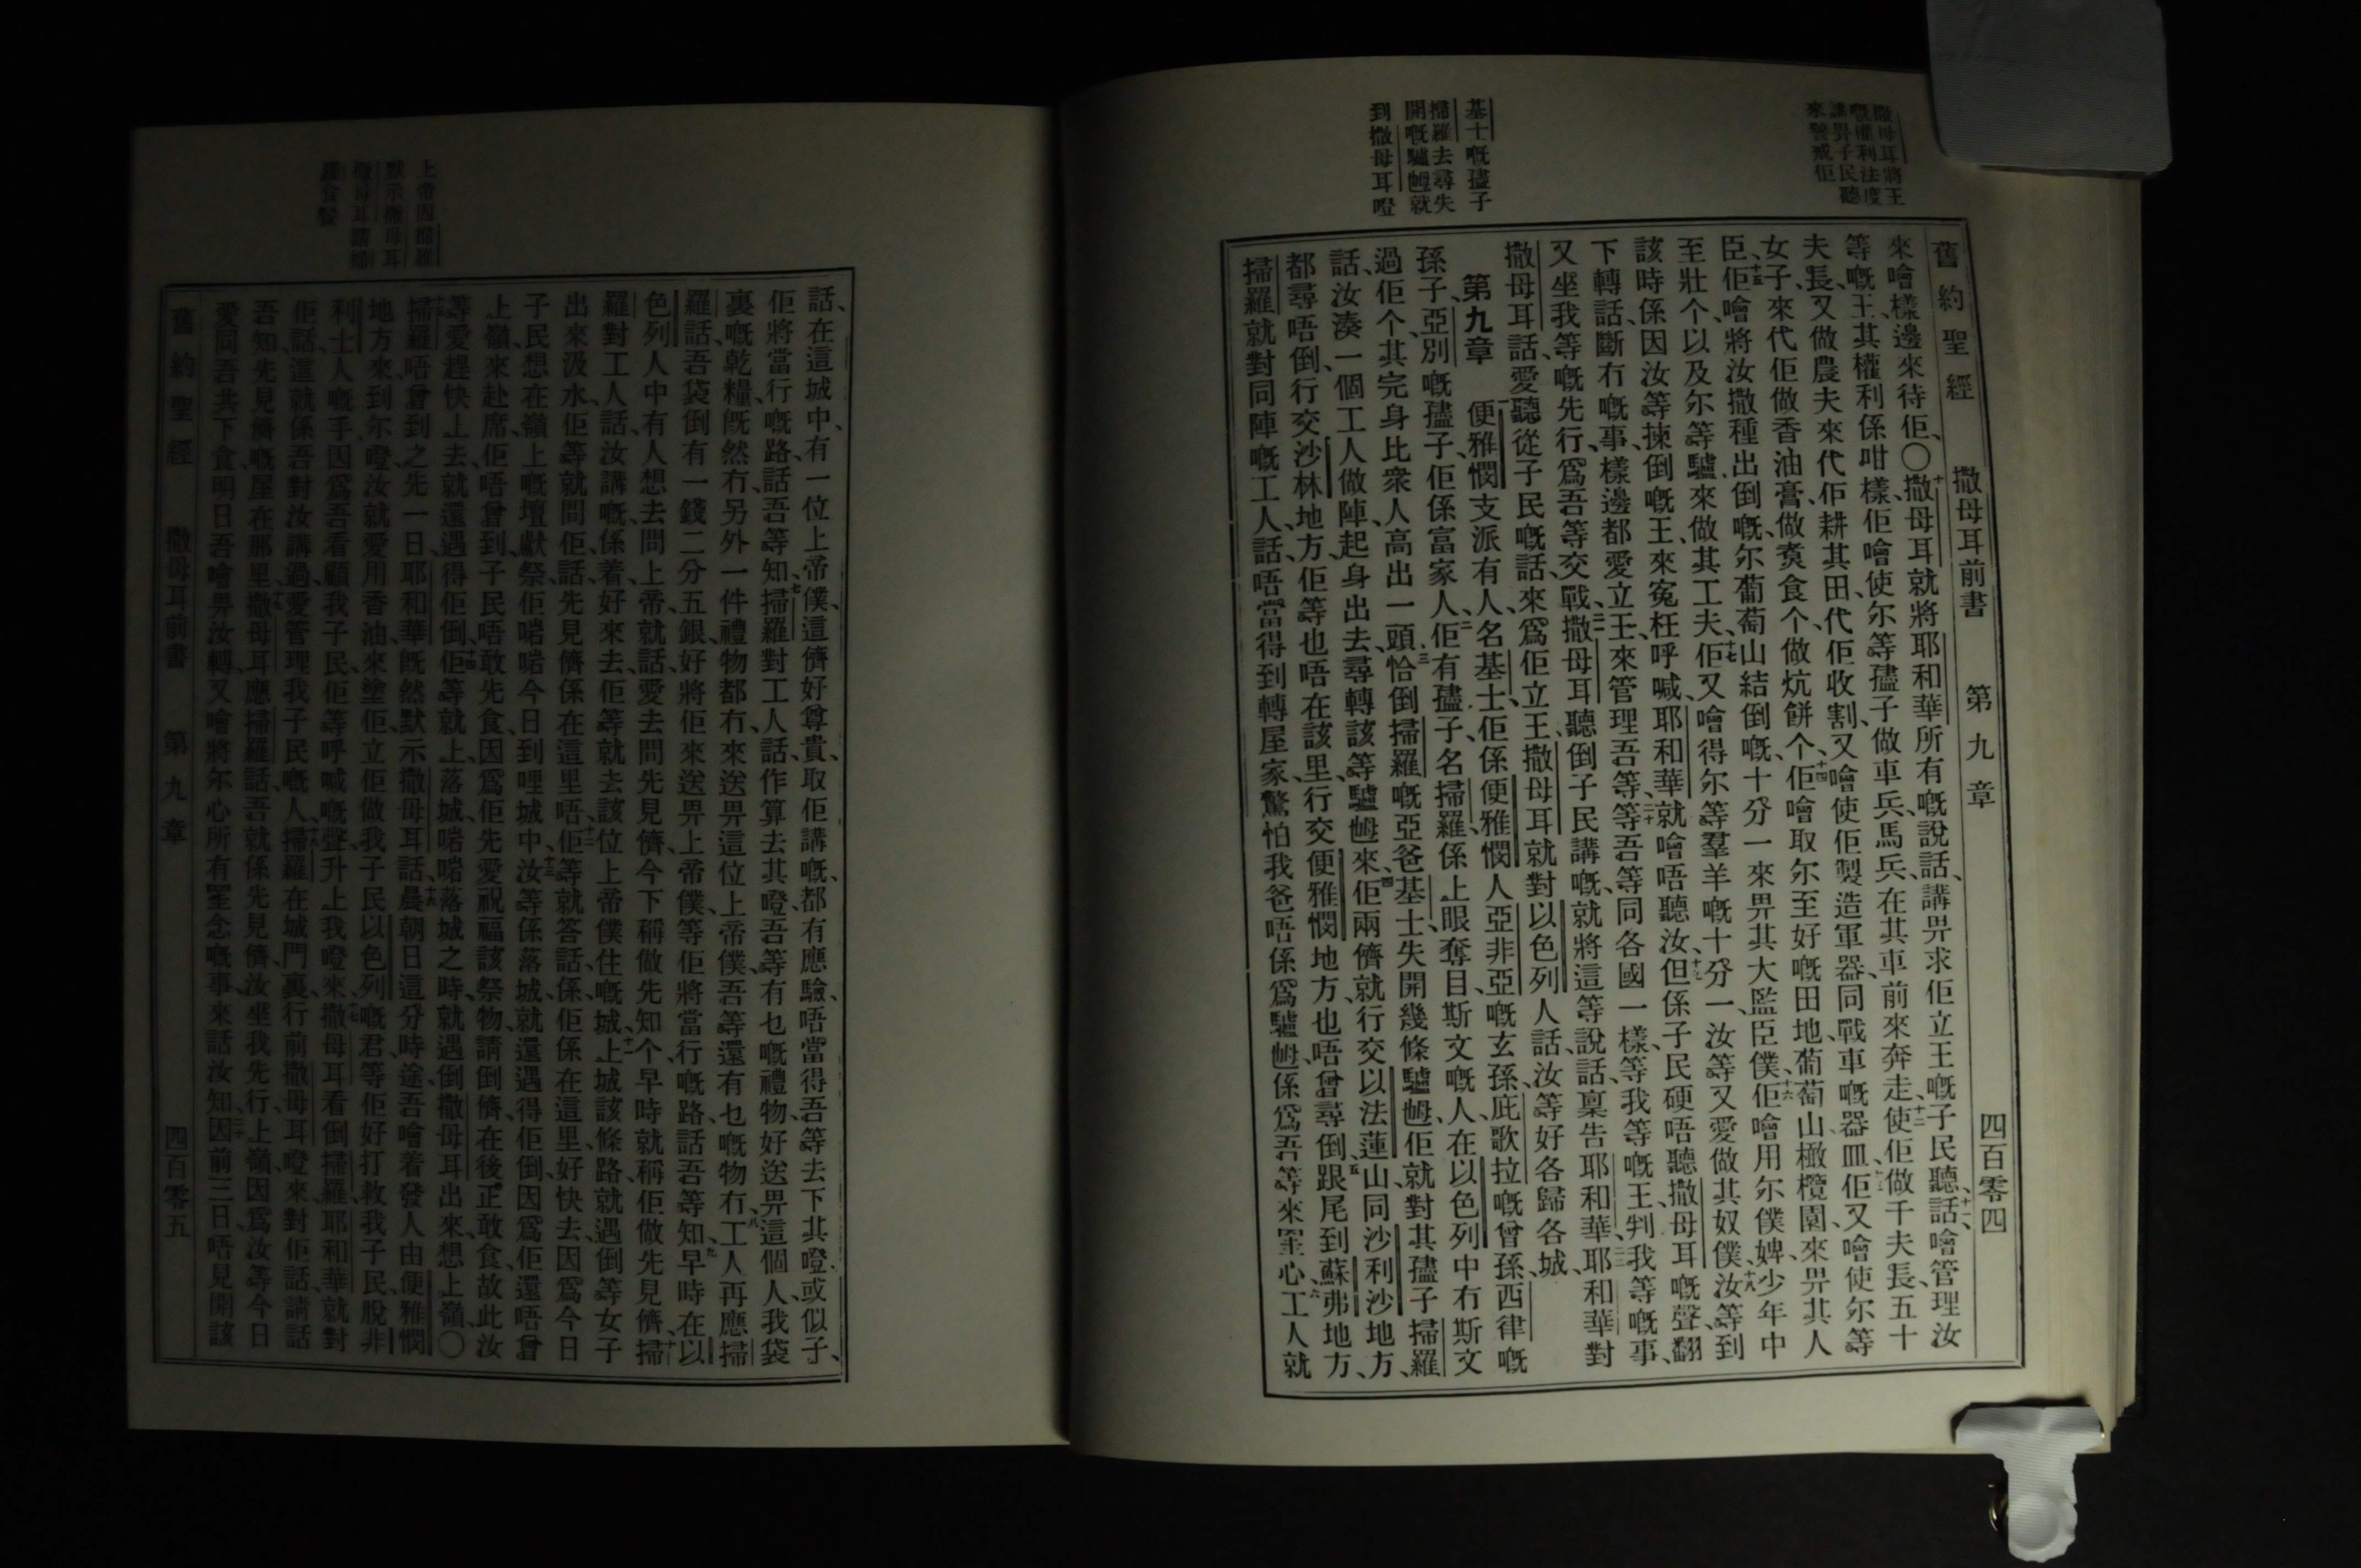 舊約聖經 撒母耳前書 第九章 四百零四
撒母耳將王
嘅權利法度
講畀子民聽
來警戒佢
基士嘅孻子
掃羅去尋失
開嘅驢乸就
到撒母耳嶝
來噲樣邊來待佢、〇十撒母耳就將耶和華所有嘅說話、講畀求佢立王嘅子民聽、十一話、噲管理汝
等嘅王、其權利係咁樣、佢噲使尔等孻子、做車兵、馬兵、在其車前來奔走、十二使佢做千夫長、五十
夫長、又做農夫來代佢耕其田、代佢收割、又噲使佢製造軍器、同戰車嘅器皿、十三佢又噲使尔等
女子、來代佢做香油膏、做煑食个、做炕餅个、十四佢噲取尔至好嘅田地、葡萄山、橄欖園、來畀其人
臣、十五佢噲將汝撒種出倒嘅、尔葡萄山結倒嘅、十分一來畀其大監臣僕、十六佢噲用尔僕婢、少年中
至壯个、以及尔等驢、來做其工夫、十七佢又噲得尔等羣羊嘅十分一、汝等又愛做其奴僕、十八汝等到
該時係因汝等揀倒嘅王、來冤枉呼喊、耶和華就噲唔聽汝、十九但係子民硬唔聽撒母耳嘅聲、翻
下轉話、斷冇嘅事、樣邊都愛立王、來管理吾等、二十等吾等同各國一樣、等我等嘅王、判我等嘅事、
又坐我等嘅先行、爲吾等交戰、二一撒母耳聽倒子民講嘅、就將這等說話、稟告耶和華、二二耶和華對
撒母耳話、愛聽從子民嘅話、來爲佢立王、撒母耳就對以色列人話、汝等好各歸各城、
第九章 一便雅憫支派有人、名基士、佢係便雅憫人、亞非亞嘅玄孫、庇歌拉嘅曾孫、西律嘅
孫子、亞別嘅孻子、佢係富家人、二佢有孻子、名掃羅、係上眼奪目斯文嘅人、在以色列中冇斯文
過佢个、其完身比衆人高出一頭、三恰倒掃羅嘅亞爸基士、失開幾條驢乸、佢就對其孻子掃羅
話、汝湊一個工人做陣、起身出去、尋轉該等驢乸來、四佢兩儕就行交以法蓮山、同沙利沙地方、
都尋唔倒、行交沙林地方、佢等也唔在該里、行交便雅憫地方、也唔曾尋倒、五跟尾到蘇弗地方、
掃羅就對同陣嘅工人、話、唔當得到轉屋家、驚怕我爸唔係爲驢乸、係爲吾等來罣心、六工人就
上帝因掃羅
默示撒母耳
撒母耳請掃
羅食餐
話、在這城中、有一位上帝僕、這儕好尊貴、取佢講嘅、都有應驗、唔當得吾等去下其嶝、或似子、
佢將當行嘅路、話吾等知、七掃羅對工人話、作算去其嶝、吾等有乜嘅禮物、好送畀這個人、我袋
裏嘅乾糧、既然冇、另外一件禮物都冇、來送畀這位上帝僕、吾等還有乜嘅物冇、八工人再應掃
羅話、吾袋倒有一錢二分五銀、好將佢來送畀上帝僕、等佢將當行嘅路、話吾等知、九早時在以
色列人中、有人想去問上帝、就話、愛去問先見儕、今下稱做先知个、早時就稱佢做先見儕、十掃
羅對工人話、汝講嘅、係着、好來去、佢等就去該位上帝僕住嘅城、十一上城該條路、就遇倒等女子
出來汲水、佢等就問佢、話、先見儕係在這里唔、十二佢等就答話、係、佢係在這里、好快去、因爲今日
子民想在嶺上嘅壇獻祭、佢啱啱今日到哩城中、十三汝等係落城、就還遇得佢倒、因爲佢還唔曾
上嶺來赴席、佢唔曾到、子民唔敢先食、因爲佢先愛祝福該祭物、請倒儕、在後正敢食、故此汝
等愛趕快上去、就還遇得佢倒、十四佢等就上落城、啱啱落城之時、就遇倒撒母耳出來、想上嶺、〇
十五掃羅唔曾到之先一日、耶和華既然默示撒母耳話、十六晨朝日這分時途、吾噲着發人由便雅憫
地方、來到尔嶝、汝就愛用香油、來塗佢、立佢做我子民以色列嘅君、等佢好打救我子民、脫非
利士人嘅手、因爲吾看顧我子民、佢等呼喊嘅聲、升上我嶝來、十七撒母耳看倒掃羅、耶和華就對
佢話、這就係吾對汝講過、愛管理我子民嘅人、十八掃羅在城門裏、行前撒母耳嶝來、對佢話、請話
吾知、先見儕嘅屋在那里、十九撒母耳應掃羅話、吾就係先見儕、汝坐我先行、上嶺、因爲汝等今日
愛同吾共下食、明日吾噲畀汝轉、又噲將尔心所有罣念嘅事、來話汝知、二十因前三日、唔見開該
舊約聖經 撒母耳前書 第九章 四百零五